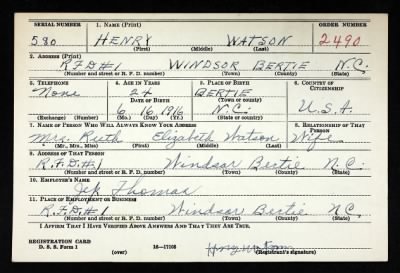 SERIAL NUMBER 1. NAME (Print) ORDER NUMBER
580 HENRY WATSON 2490
(First) (Middle) (Last)
2. ADDRESS (Print)
R.F.D#1 WINDSOR BERTIE N.C.
(Number and street or R. F. D. number) (Town) (County) (State)
3. TELEPHONE 4. AGE IN YEARS 5. PLACE OF BIRTH 6. COUNTRY OF CITIZENSHIP
None 24 BERTIE
DATE OF BIRTH (Town or county)
6 16 1916 N.C. U.S.A.
(Exchange) (Number) (Mo.) (Day) (Yr.) (State or country)
7. NAME OF PERSON WHO WILL ALWAYS KNOW YOUR ADDRESS 8. RELATIONSHIP OF THAT PERSON
Mrs. Ruth Elizabeth Watson Wife
(Mr., Mrs., Miss) (First) (Middle) (Last)
9. ADDRESS OF THAT PERSON
R.F.D.#1 Windsor Bertie N.C.
(Number and street or R. F. D. number) (Town) (County) (State)
10. EMPLOYER'S NAME
Thomas
11. PLACE OF EMPLOYMENT OR BUSINESS
R.F.D.#1 Windsor Bertie N.C.
(Number and street or R. F. D. number) (Town) (County) (State)
I AFFIRM THAT I HAVE VERIFIED ABOVE ANSWERS AND THAT THEY ARE TRUE.
REGISTRATION CARD
D. S. S. Form 1 (over) 16—17105 (Registrant's signature)